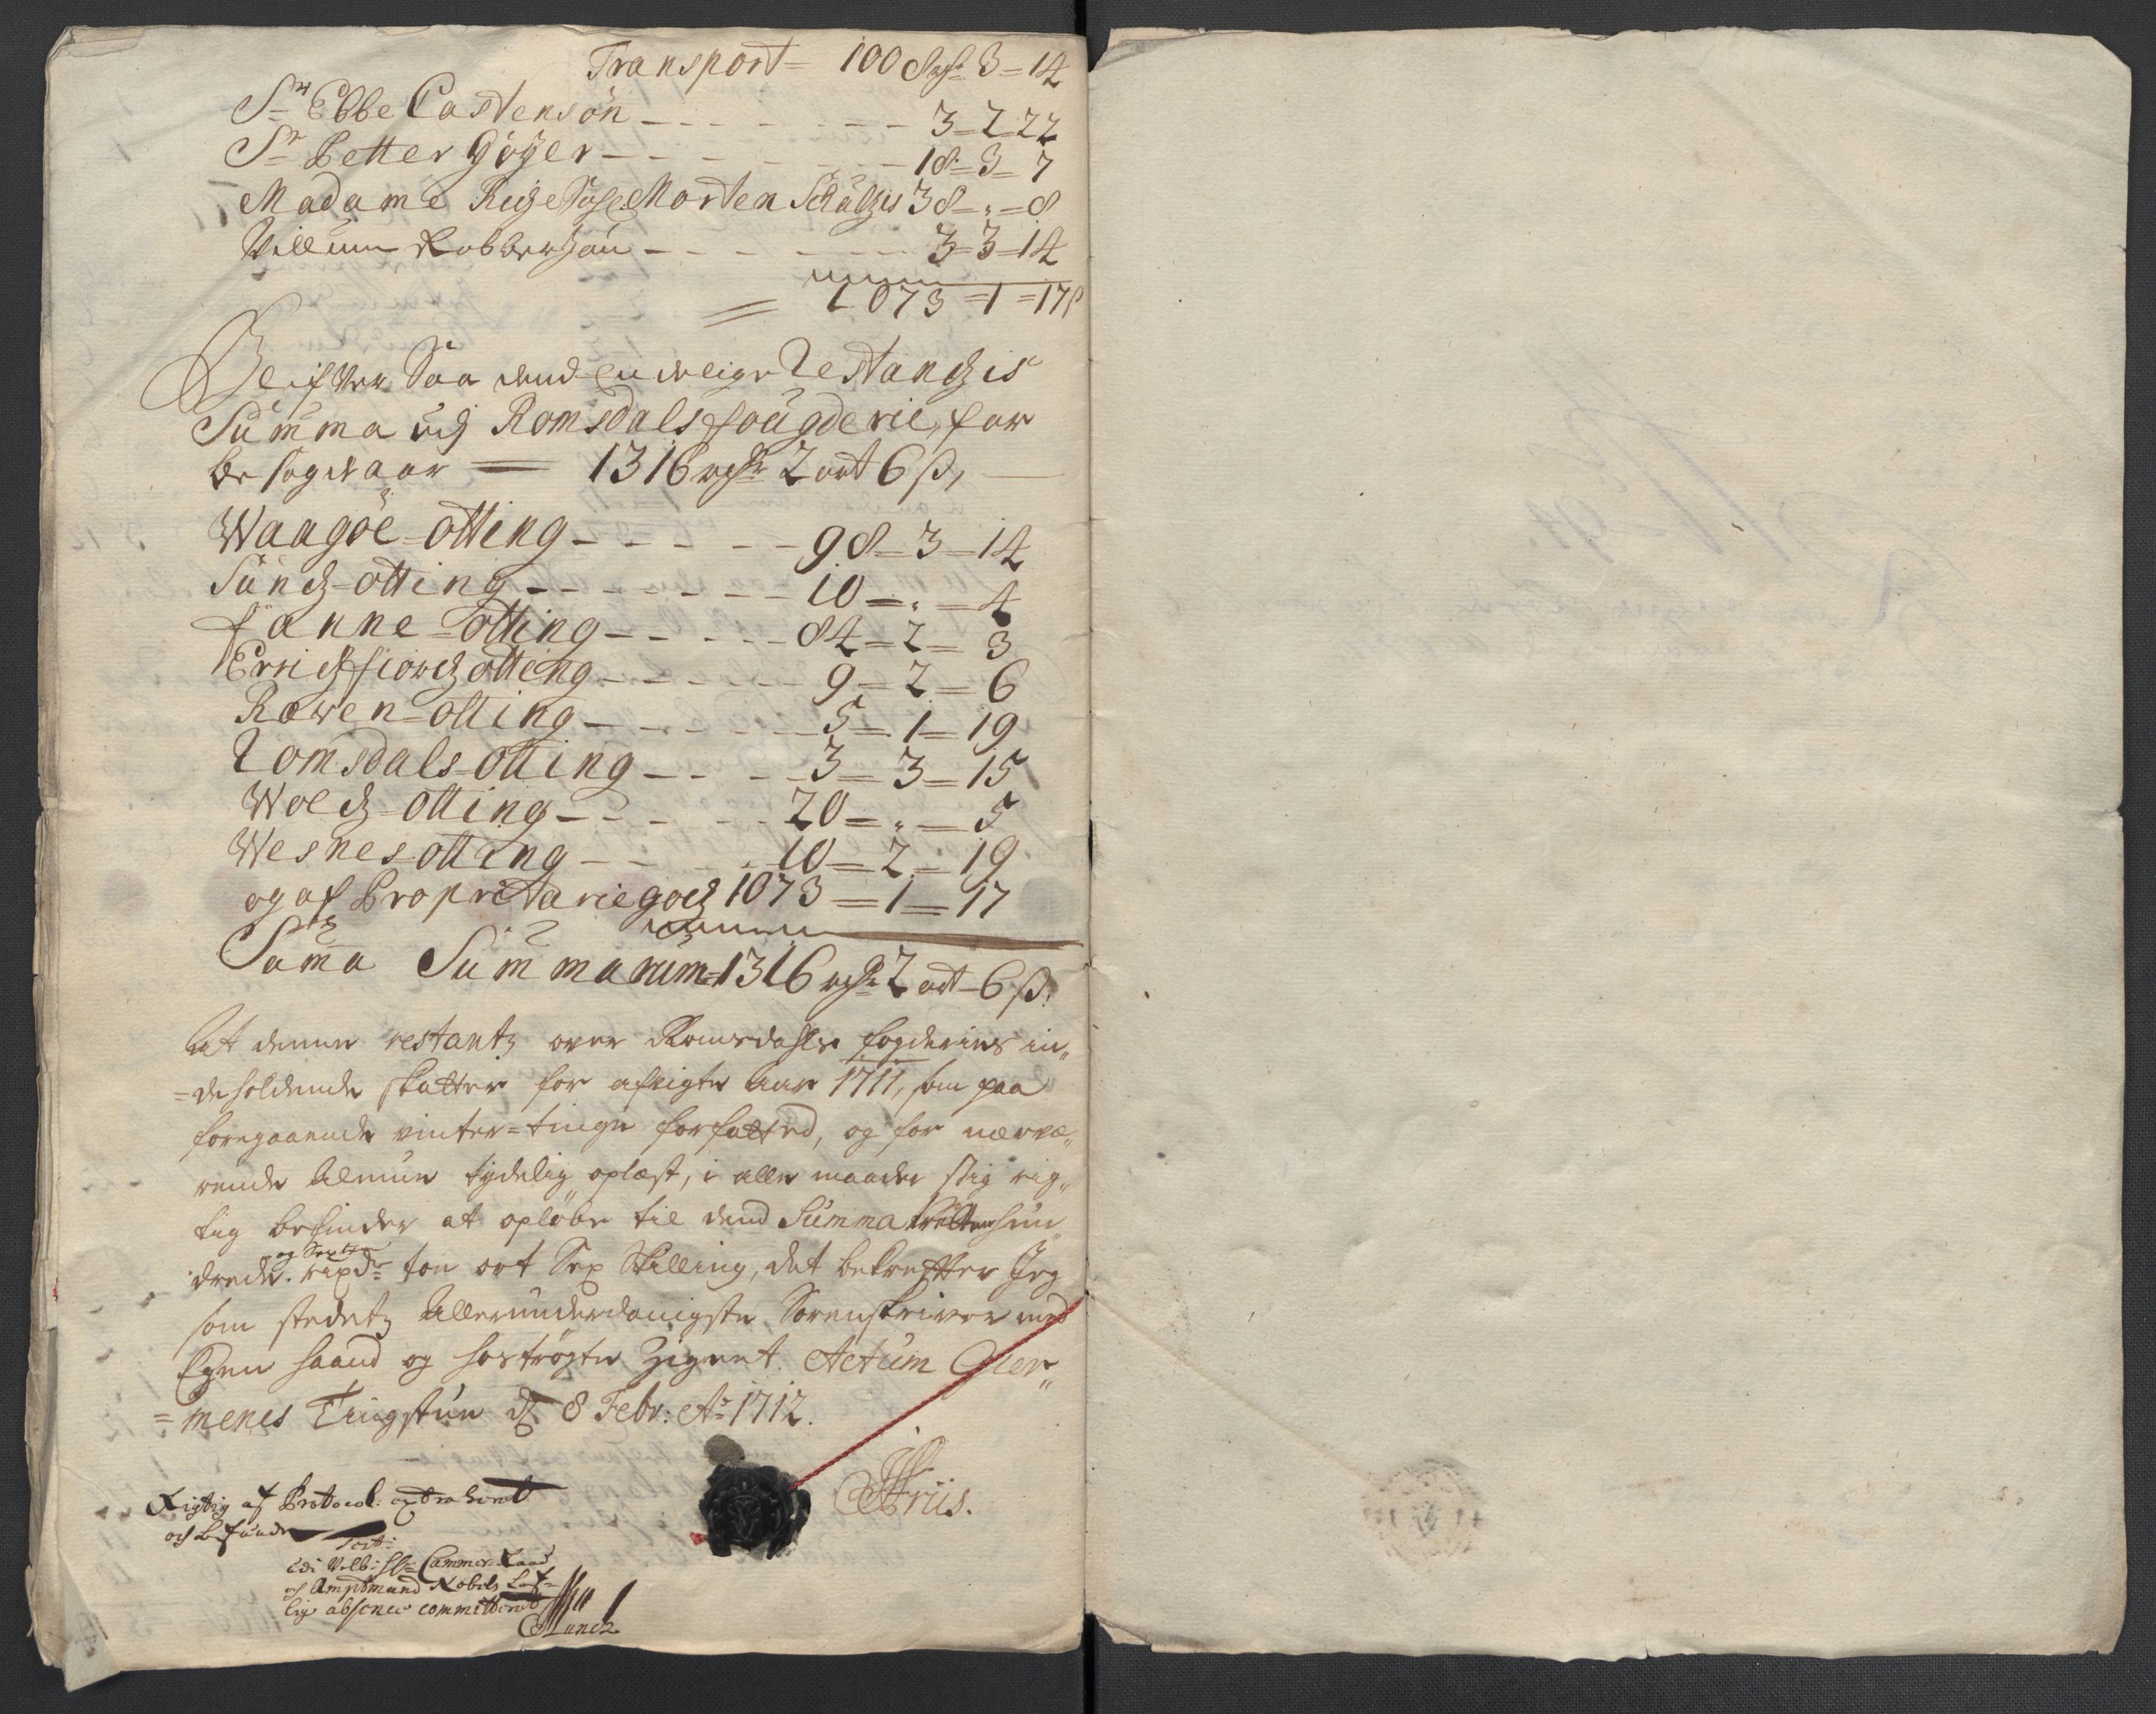 Transport = 1008 rdr 3 = 14
Sr Ebbe Castensøn - - - - - - - 3 = 2 = 22
Sr Petter Høyer - - - - - - - 18 = 3 = 7
Madame Sal. Morten Schultzis 38 = „ = 8
Villum Robbertzøn - - - - - - - 3 = 3 = 14
= 1073 = 1 = 17 s
Blifver Saa dend Endelige Restandzis
Summa udj Romsdals fougderie, for
besagde aar = 1316 rdr 2 ort 6 ß,
Waagøe = otting - - - - - 98 = 3 = 14
Sundz = otting - - - - - - 10 = „ = 4
Fanne = otting - - - - - 84 = 2 = 3
Erridtzfiordz otting - - - - - 9 = 2 = 6
Røven = otting - - - - - 5 = 1 = 19
Romsdals = otting - - - - 3 = 3 = 15
Woldz = otting - - - - - 20 = „ = 5
Wesnes otting - - - - - 10 = 2 = 19
og af Proprietarie godz 1073 = 1 = 17
Suma Summarum = 1316 rdr 2 ort = 6 ß.
At denne restantz over Romsdahls fogderies in„
= deholdende skatter for afvigte Aar 1711, som paa
foregaaende vinter = tinge forfatted, og for nærvæ„
rende Almue tydelig oplæst, i alle maader sig rig„
tig befinder at opløbe til dend Summa trettenhun„
og Sexten
drede rixdr toe ort Sex Skilling, det bekræfter Jeg
som stedetz Allerunderdanigste Sorenskriver med
Egen haand og hostrøgte Zignet. Actum Gier„
= menes Tingstue d. 8 Febr: Ao 1712.
Friis.
Rigtig af Protocol: extraherit
och befunden
Test:
udi Velb: Hr Cammer = Raad
og Amptmand Nobels Lof=
lig absence committeret
Munch